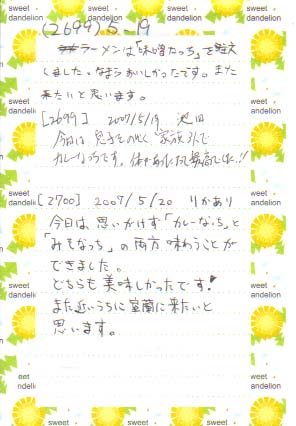 (2699) 5-19
ラーメンは「味噌たっち」を
しました。なまらおいしかったです。また
来たいと思います。
[2699] 2007/5/19 池田
今日は息子を 家族3人で
カレーなっちです。 最高でした!!
[2700] 2007/5/20 りかあり
今日は、思いがけず「カレーなっち」と
「みそなっち」の両方味わうことが
できました。
どちらも美味しかったです!
また近いうちに室蘭に来たいと
思います。
sweet dandelion
sweet dandelion
sweet dandelion
sweet dandelion
sweet dandelion
sweet dandelion
sweet dandelion
sweet dandelion
sweet
sweet
sweet